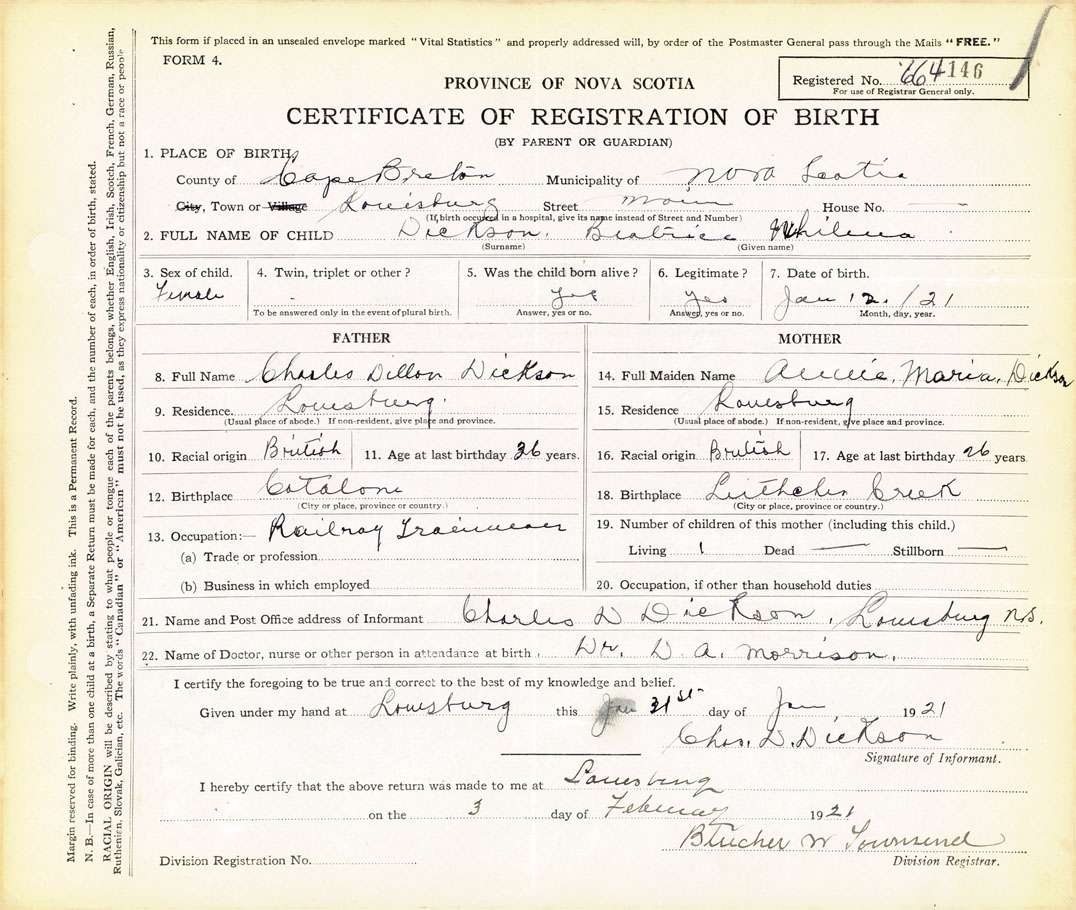 This form if placed in an unsealed envelope marked "Vital Statistics" and properly addressed will, by order of the Postmaster General pass through the Mails "FREE."
FORM 4.
PROVINCE OF NOVA SCOTIA
Registered No. 664146
For use of Registrar General only.
CERTIFICATE OF REGISTRATION OF BIRTH
(BY PARENT OR GUARDIAN)
1. PLACE OF BIRTH,
County of Cape Breton Municipality of Nova Scotia
City, Town or Village Louisburg Street Main House No. —
(If birth occured in a hospital, give its name instead of Street and Number)
2. FULL NAME OF CHILD Dickson. Beatrice Whilena
(Surname) (Given name)
3. Sex of child. 4. Twin, triplet or other? 5. Was the child born alive? 6. Legitimate? 7. Date of birth.
Female yes yes Jan 12. /21
To be answered only in the event of plural birth. Answer, yes or no. Answer, yes or no. Month, day, year.
FATHER MOTHER
8. Full Name Charles Dillon Dickson 14. Full Maiden Name Annie, Maria, Dickson
9. Residence. Louisburg. 15. Residence Louisburg
(Usual place of abode.) If non-resident, give place and province. (Usual place of abode.) If non-resident, give place and province.
10. Racial origin British 11. Age at last birthday 36 years. 16. Racial origin British 17. Age at last birthday 26 years.
12. Birthplace Catalone 18. Birthplace Creek
(City or place, province or country.) (City or place, province or country.)
13. Occupation:— Railroy Trainman 19. Number of children of this mother (including this child.)
(a) Trade or profession Living 1 Dead — Stillborn —
(b) Business in which employed 20. Occupation, if other than household duties
21. Name and Post Office address of Informant Charles D Dickson, Louisburg N.S.
22. Name of Doctor, nurse or other person in attendance at birth. Dr. D. A. Morrison.
I certify the foregoing to be true and correct to the best of my knowledge and belief.
Given under my hand at Louisburg this Jan 31st day of Jan 1921
Chas. D. Dickson
Signature of Informant.
I hereby certify that the above return was made to me at Louisburg
on the 3 day of February 1921
Blucher W Townsend
Division Registration No. Division Registrar.
Margin reserved for binding. Write plainly, with unfading ink. This is a Permanent Record.
N. B.—In case of more than one child at a birth, a Separate Return must be made for each, and the number of each, in order of birth, stated.
RACIAL ORIGIN will be described by stating to what people or tongue each of the parents belongs, whether English, Irish, Scotch, French, German, Russian,
Ruthenian, Slovak, Galician, etc. The words "Canadian" or "American" must not be used, as they express nationality or citizenship but not a race or people